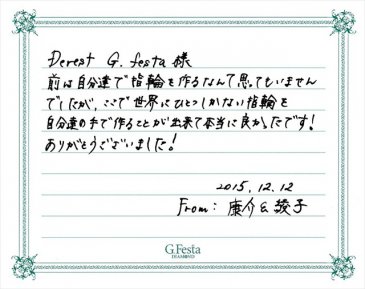 Derest G. festa 様
前は自分達で指輪を作るなんて思ってもいません
でしたが、ここで世界にひとつしかない指輪を
自分達の手で作ることが出来て本当に良かったです!
ありがとうございました!
2015.12.12
From: 康介&綾子
G.Festa
DIAMOND